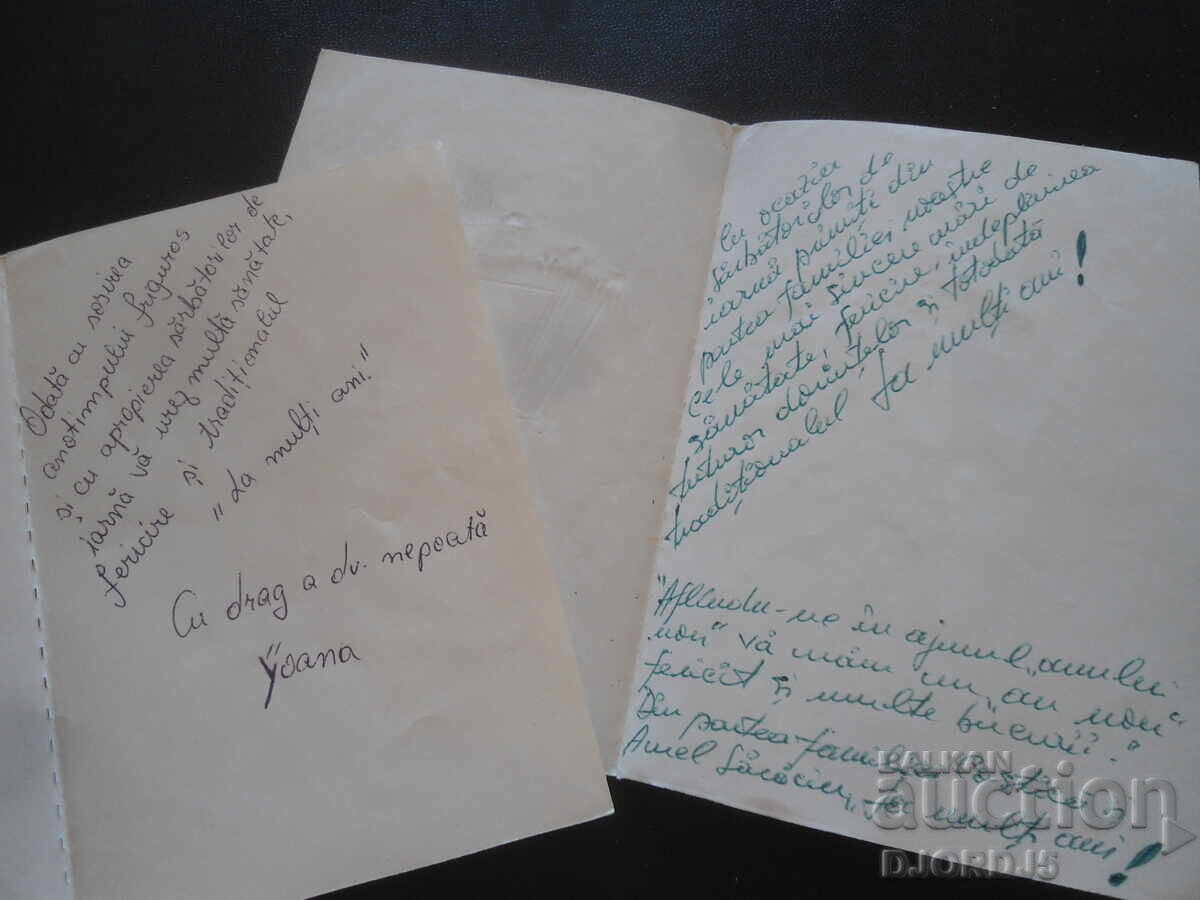 Odată cu sosirea
anotimpului friguros
și cu apropierea sărbătorilor de
iarnă vă urez multă sănătate,
fericire și tradiționalul
"La mulți ani."
Cu drag a dv. nepoată
Yoana
Cu ocazia
sărbătorilor de
iarnă primiți din
partea familiei noastre
cele mai sincere urări de
sănătate, fericire, îndeplinirea
tuturor dorințelor și totodată
tradiționalul La mulți ani!
"Aflându-ne în ajunul "anului
nou" vă urăm un "an nou"
fericit și multe bucurii."
Din partea familiei și
Aurel La mulți ani!
BALKAN
auction
DJORDJ5